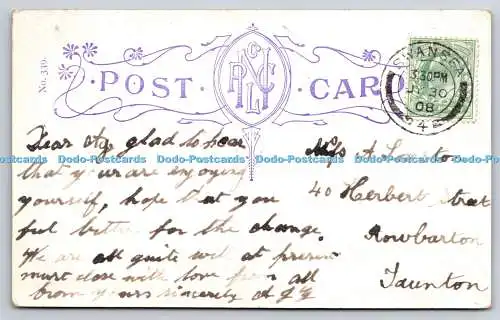 No. 339.
POST CARD
SWANSEA
3.30PM
30
08
Dear glad to hear
that you are enjoying
yourself, hope that you
feel better for the change.
We are all quite well at present
must close with love from all
from yours sincerely
A
40 Herbert Street
Rowbarton
Taunton
Dodo-Postcards Dodo-Postcards Dodo-Postcards Dodo-Postcards Dodo-Postcards